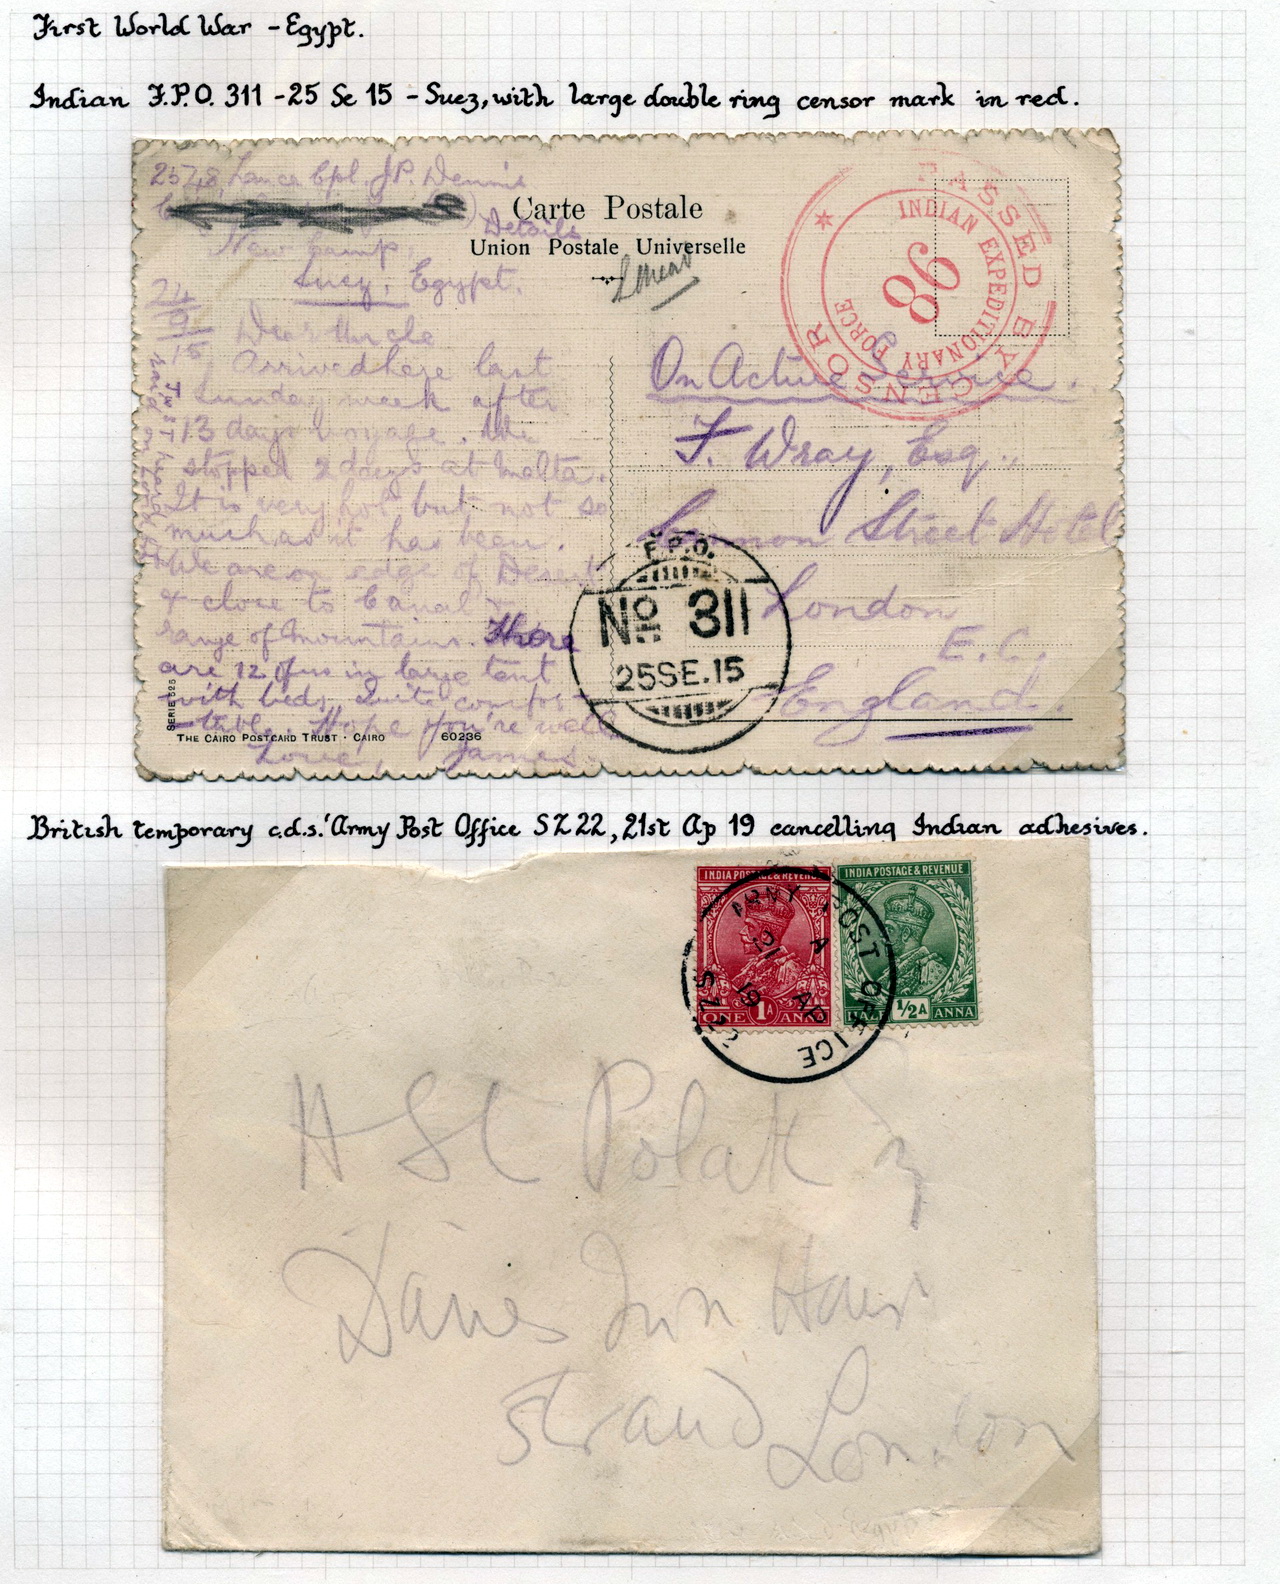 First World War - Egypt.
Indian F.P.O. 311 - 25 Se 15 - Suez, with large double ring censor mark in red.
2548, Lance Cpl. J.P. Dennis
Details
New Camp,
Suez, Egypt.
24/9/15
Dear Uncle
Arrived here last
Sunday week after
13 days voyage. We
stopped 2 days at Malta.
It is very hot but not so
much as it has been.
We are on edge of Desert
& close to Canal &
range of mountains. There
are 12 of us in large tent
with beds. Quite comfor-
table. Hope you're well
Love, James.
SERIE 525
THE CAIRO POSTCARD TRUST · CAIRO 60236
Carte Postale
Union Postale Universelle
PASSED BY CENSOR
INDIAN EXPEDITIONARY FORCE
98
On Active Service.
F. Wray, Esq.,
Cannon Street Hotel
London
E.C.
England.
F.P.O.
No 311
25SE.15
British temporary c.d.s. 'Army Post Office SZ 22, 21st Ap 19 cancelling Indian adhesives.
INDIA POSTAGE & REVENUE
ONE 1A ANNA
INDIA POSTAGE & REVENUE
HALF 1/2A ANNA
ARMY POST OFFICE SZ22
A
21 AP
19
H St Polatt
Danes Inn House
Strand London